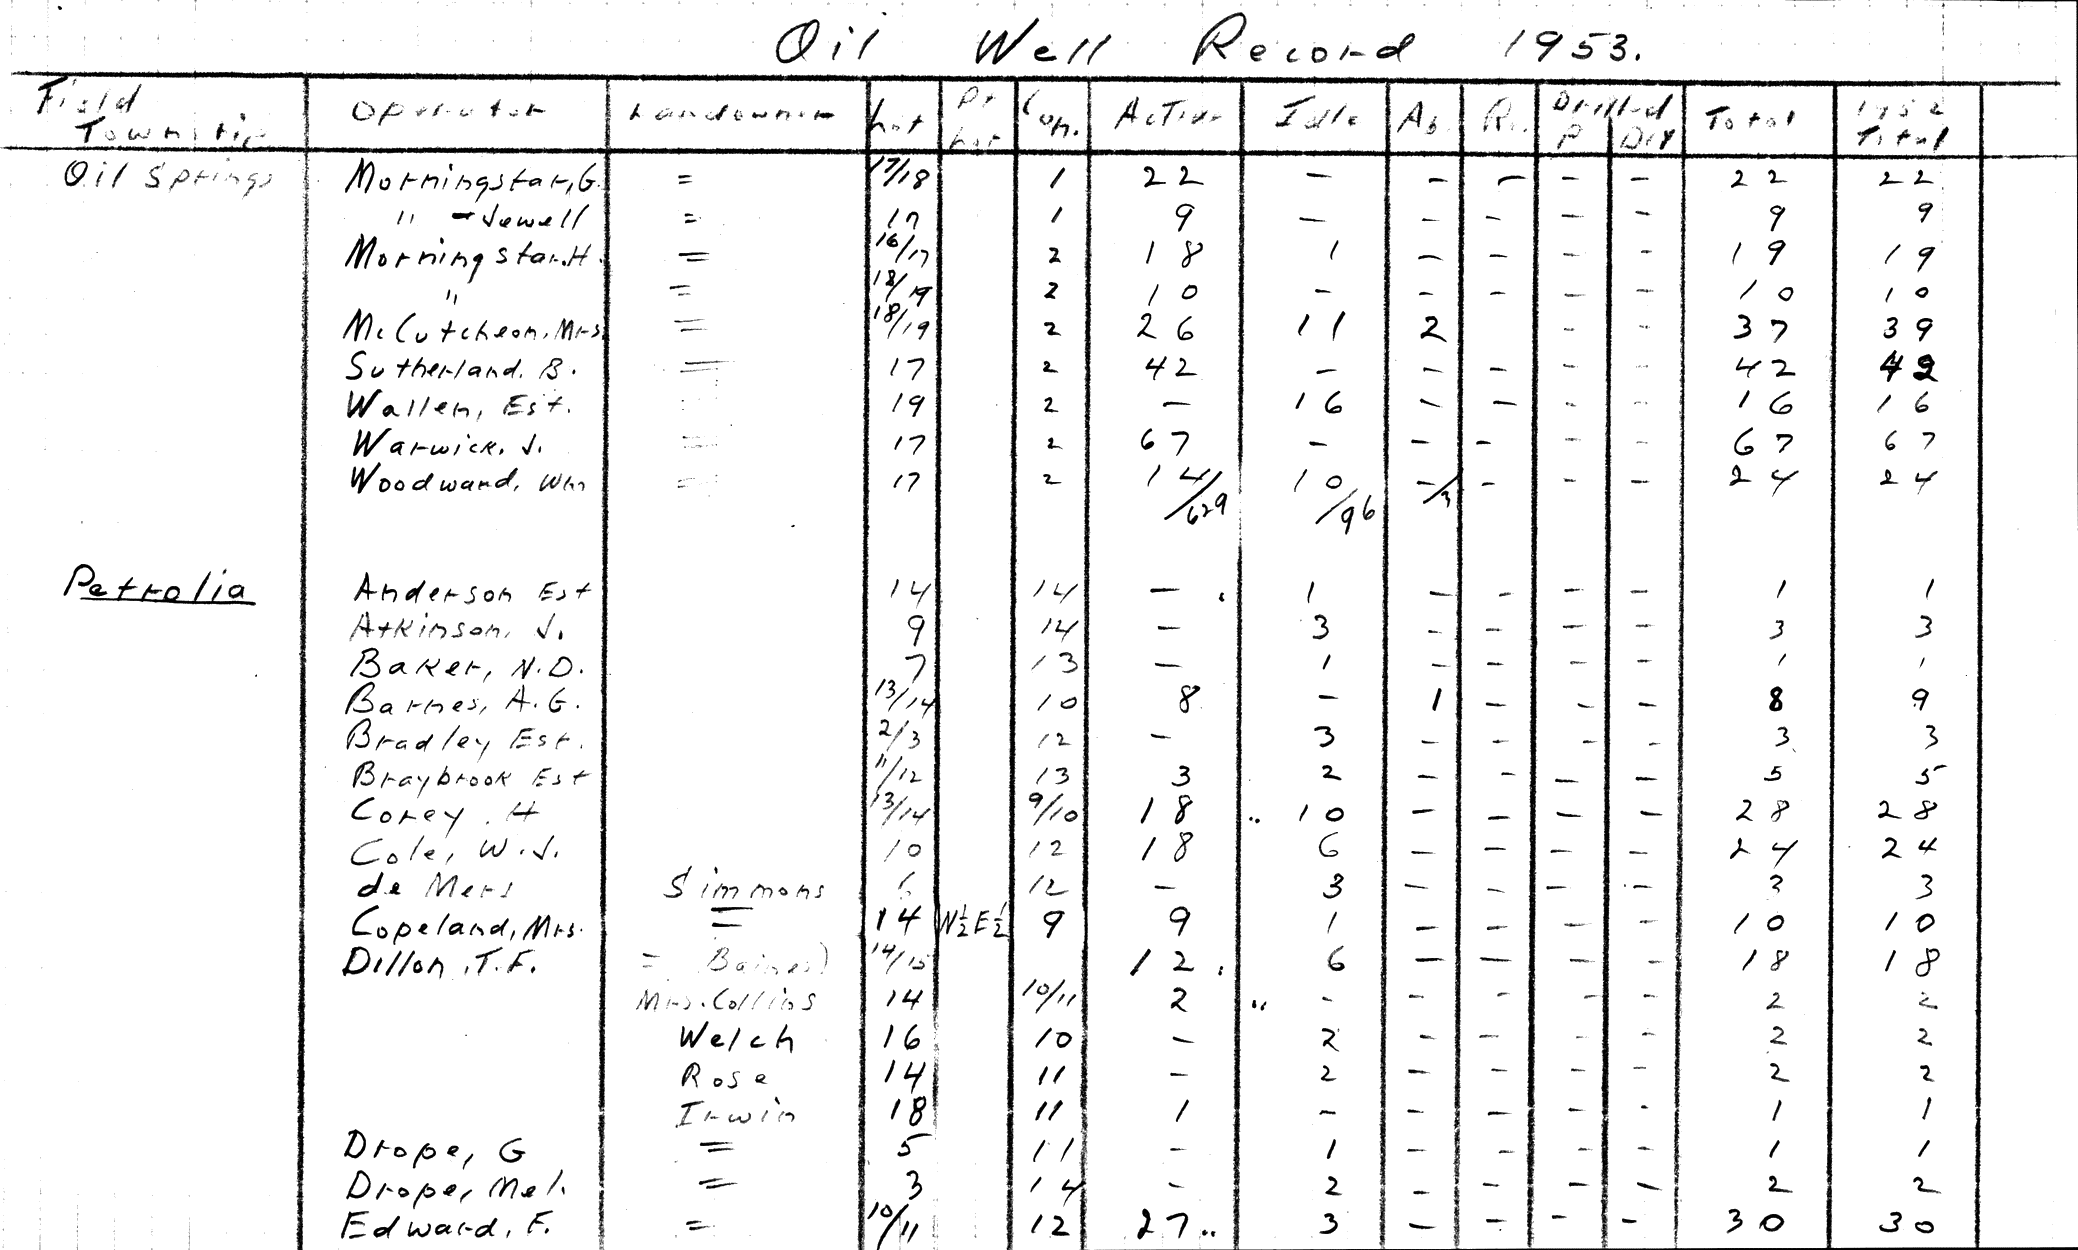 Oil Well Record 1953.
Field Township Operator Landowner Lot Pt Lot Con. Active Idle Ab. Drilled P Dry Total 1952 Total
Oil Springs Morningstar, G. = 17/18 1 22 — – – – – 22 22
" – Jewell = 17 1 9 — – – – – 9 9
Morningstar. H. = 16/17 2 18 1 – – – – 19 19
" = 18/19 2 10 – – – – – 10 10
McCutcheon, Mrs. = 18/19 2 26 11 2 – – 37 39
Sutherland. B. = 17 2 42 – – – – – 42 42
Wallen, Est. = 19 2 — 16 – – – – 16 16
Warwick. J. = 17 2 67 – – – – – 67 67
Woodward, Wm = 17 2 14/629 10/96 –/3 – – – 24 24
Petrolia Anderson Est 14 14 — 1 – – – – 1 1
Atkinson, J. 9 14 — 3 – – – – 3 3
Baker, N.D. 7 13 — 1 – – – – 1 1
Barnes, A.G. 13/14 10 8 – 1 – – – 8 9
Bradley Est. 2/3 12 – 3 – – – – 3 3
Braybrook Est 11/12 13 3 2 – – – – 5 5
Corey . H 13/14 9/10 18 .. 10 – – – – 28 28
Cole, W.J. 10 12 18 6 – – – – 24 24
de Mers Simmons 6 12 – 3 – – – – 3 3
Copeland, Mrs. = 14 N½E½ 9 9 1 – – – – 10 10
Dillon, T.F. = Baines) 14/15 12. 6 – – – – 18 18
Mrs. Collins 14 10/11 2 .. – – – – – 2 2
Welch 16 10 – 2 – – – – 2 2
Rose 14 11 – 2 – – – – 2 2
Irwin 18 11 1 – – – – – 1 1
Drope, G = 5 11 – 1 – – – – 1 1
Drope, Mel. = 3 14 – 2 – – – – 2 2
Edward, F. = 10/11 12 27.. 3 – – – – 30 30